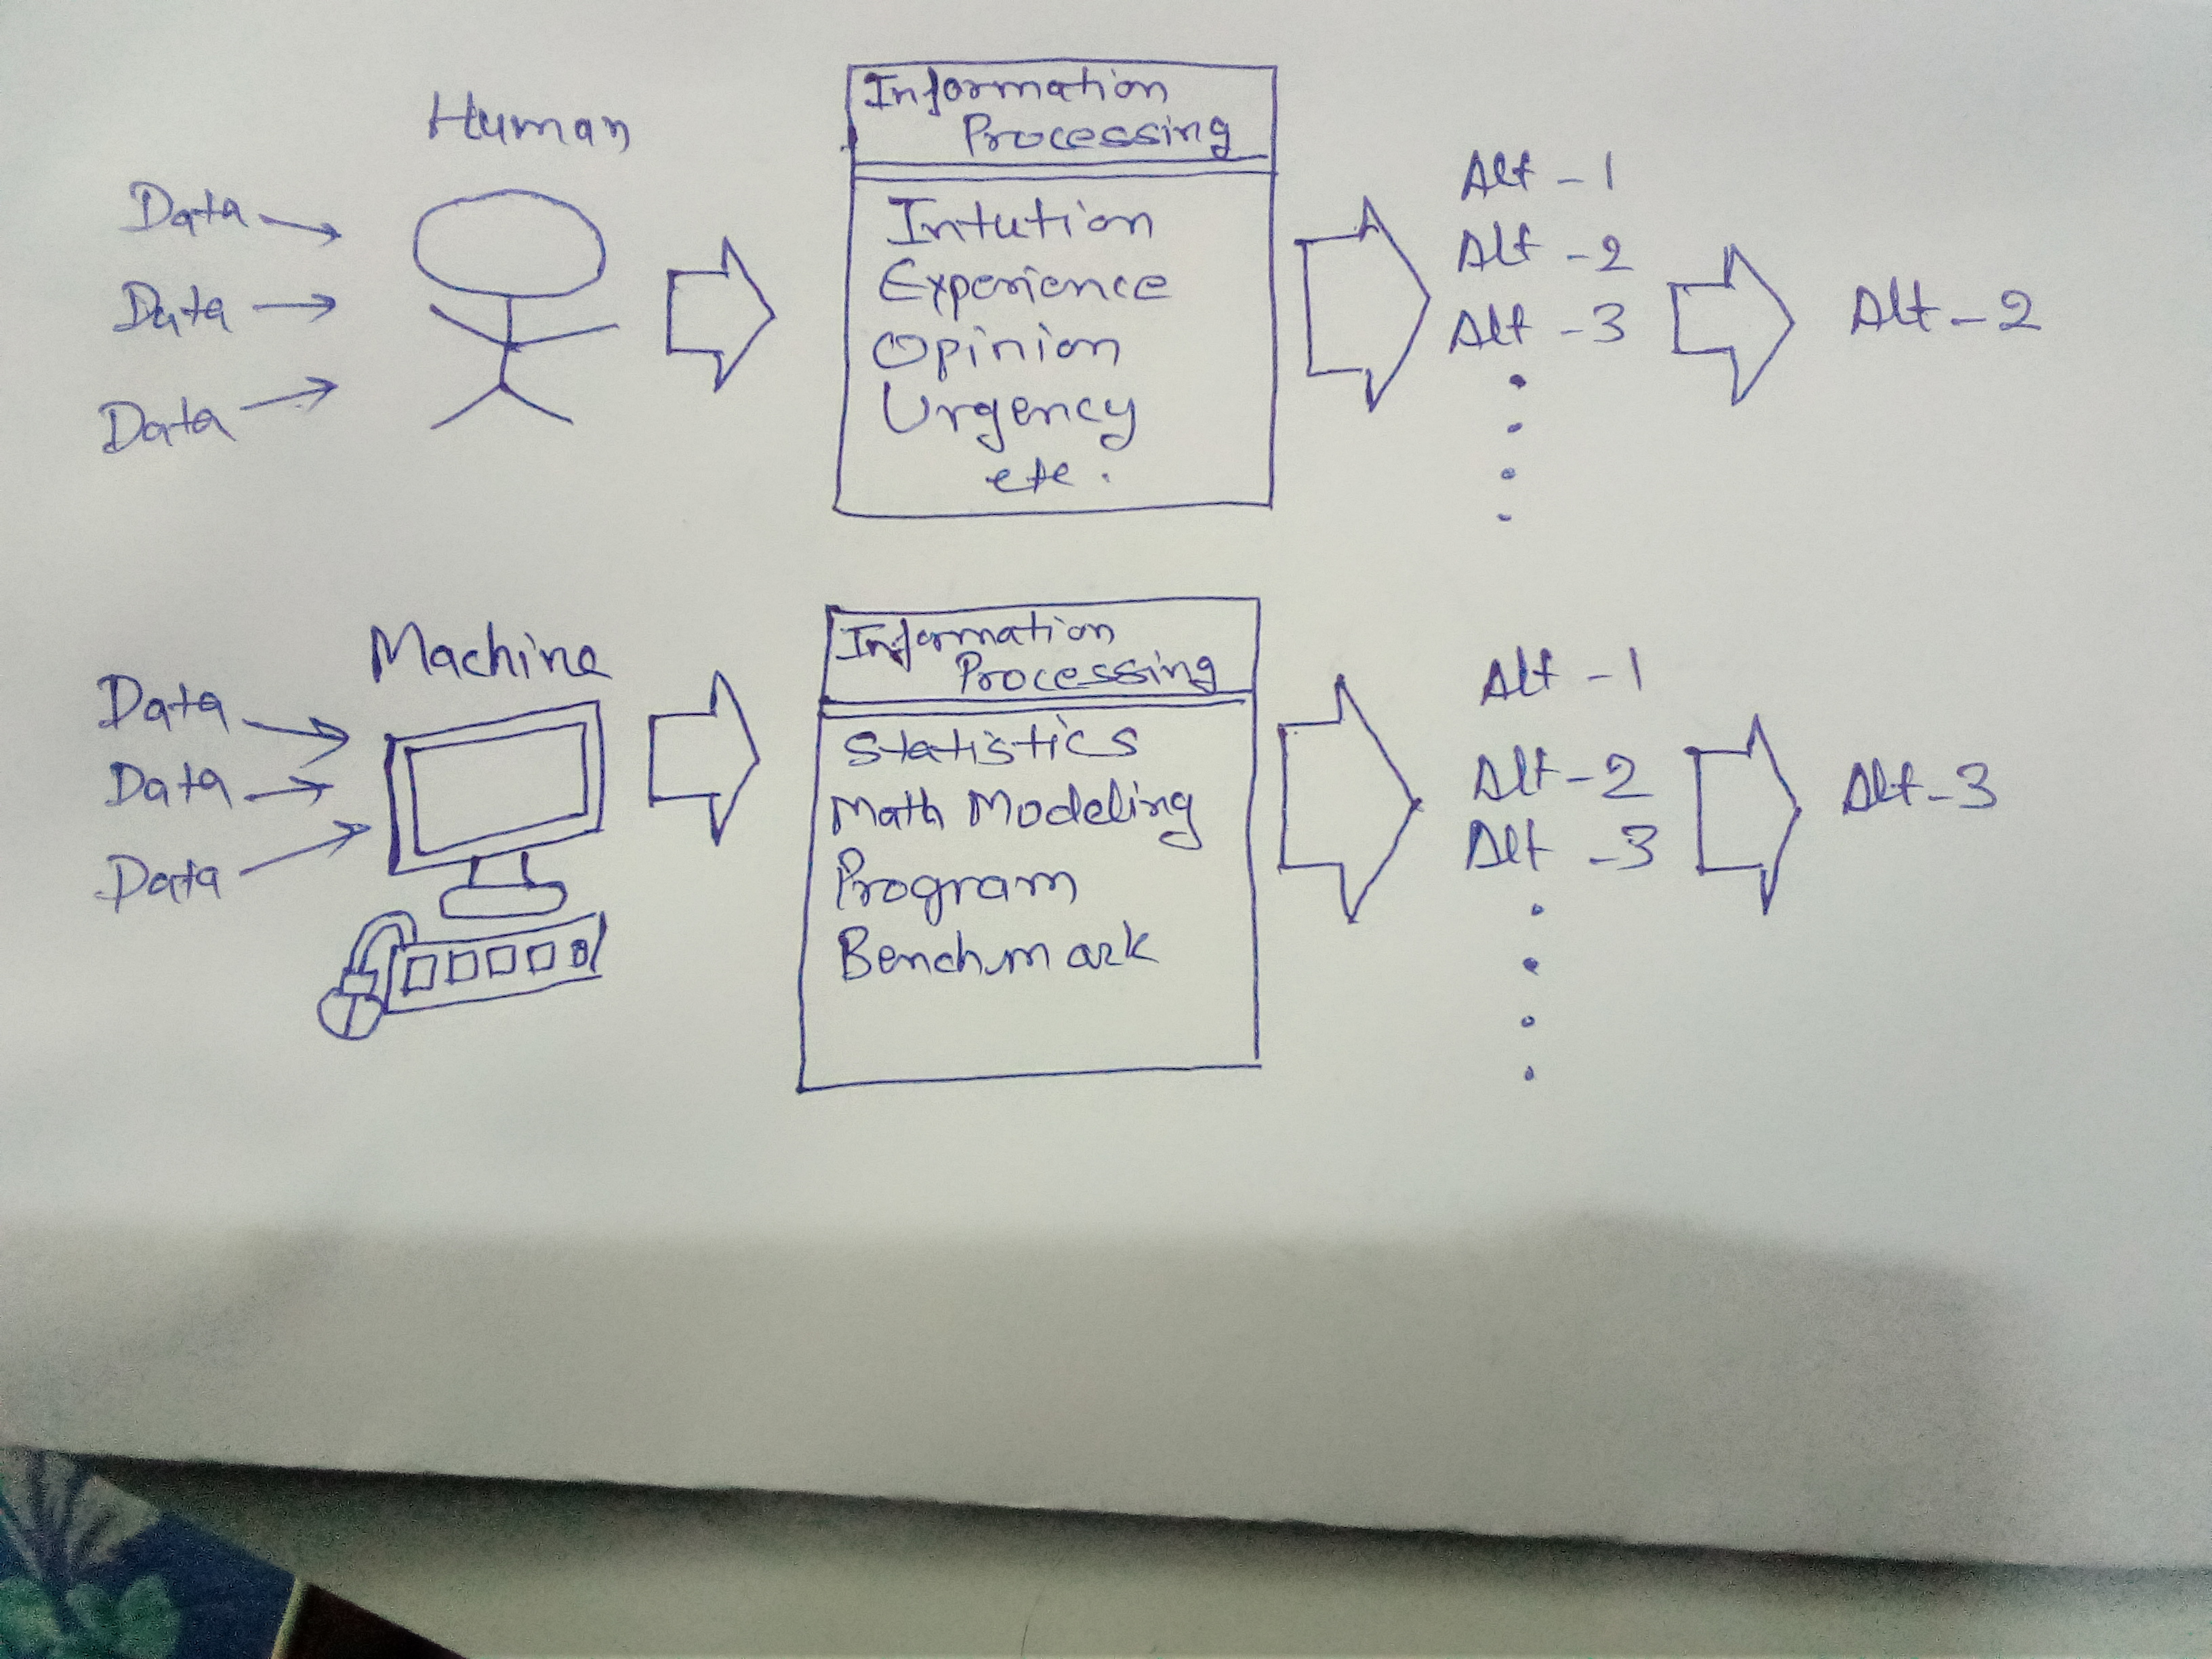 Human
Data
Data
Data
Information
Processing
Intution
Experience
Opinion
Urgency
etc.
Alt - 1
Alt - 2
Alt - 3
Alt - 2
Machine
Data
Data
Data
Information
Processing
Statistics
Math Modeling
Program
Benchmark
Alt - 1
Alt - 2
Alt - 3
Alt - 3